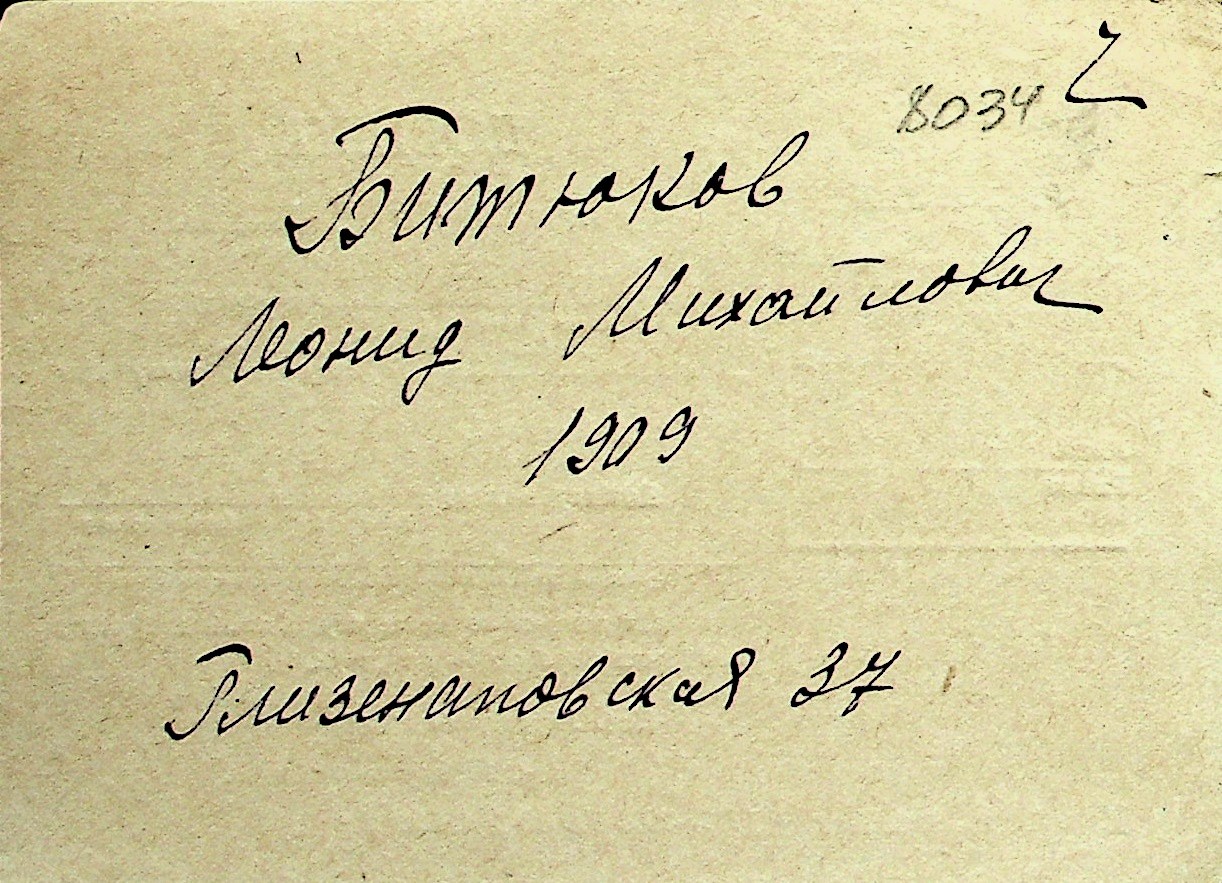 8034 ч
Битюков
Леонид Михайлович
1909
Глизенаповская 37